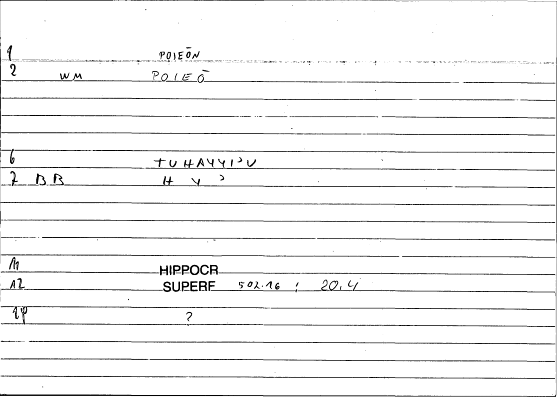 1 POIEŌN
2 WM POIEŌ
6 TUHAYYIʾU
7 BB H Y ʾ
11 HIPPOCR
12 SUPERF 502.16 ; 20,4
?